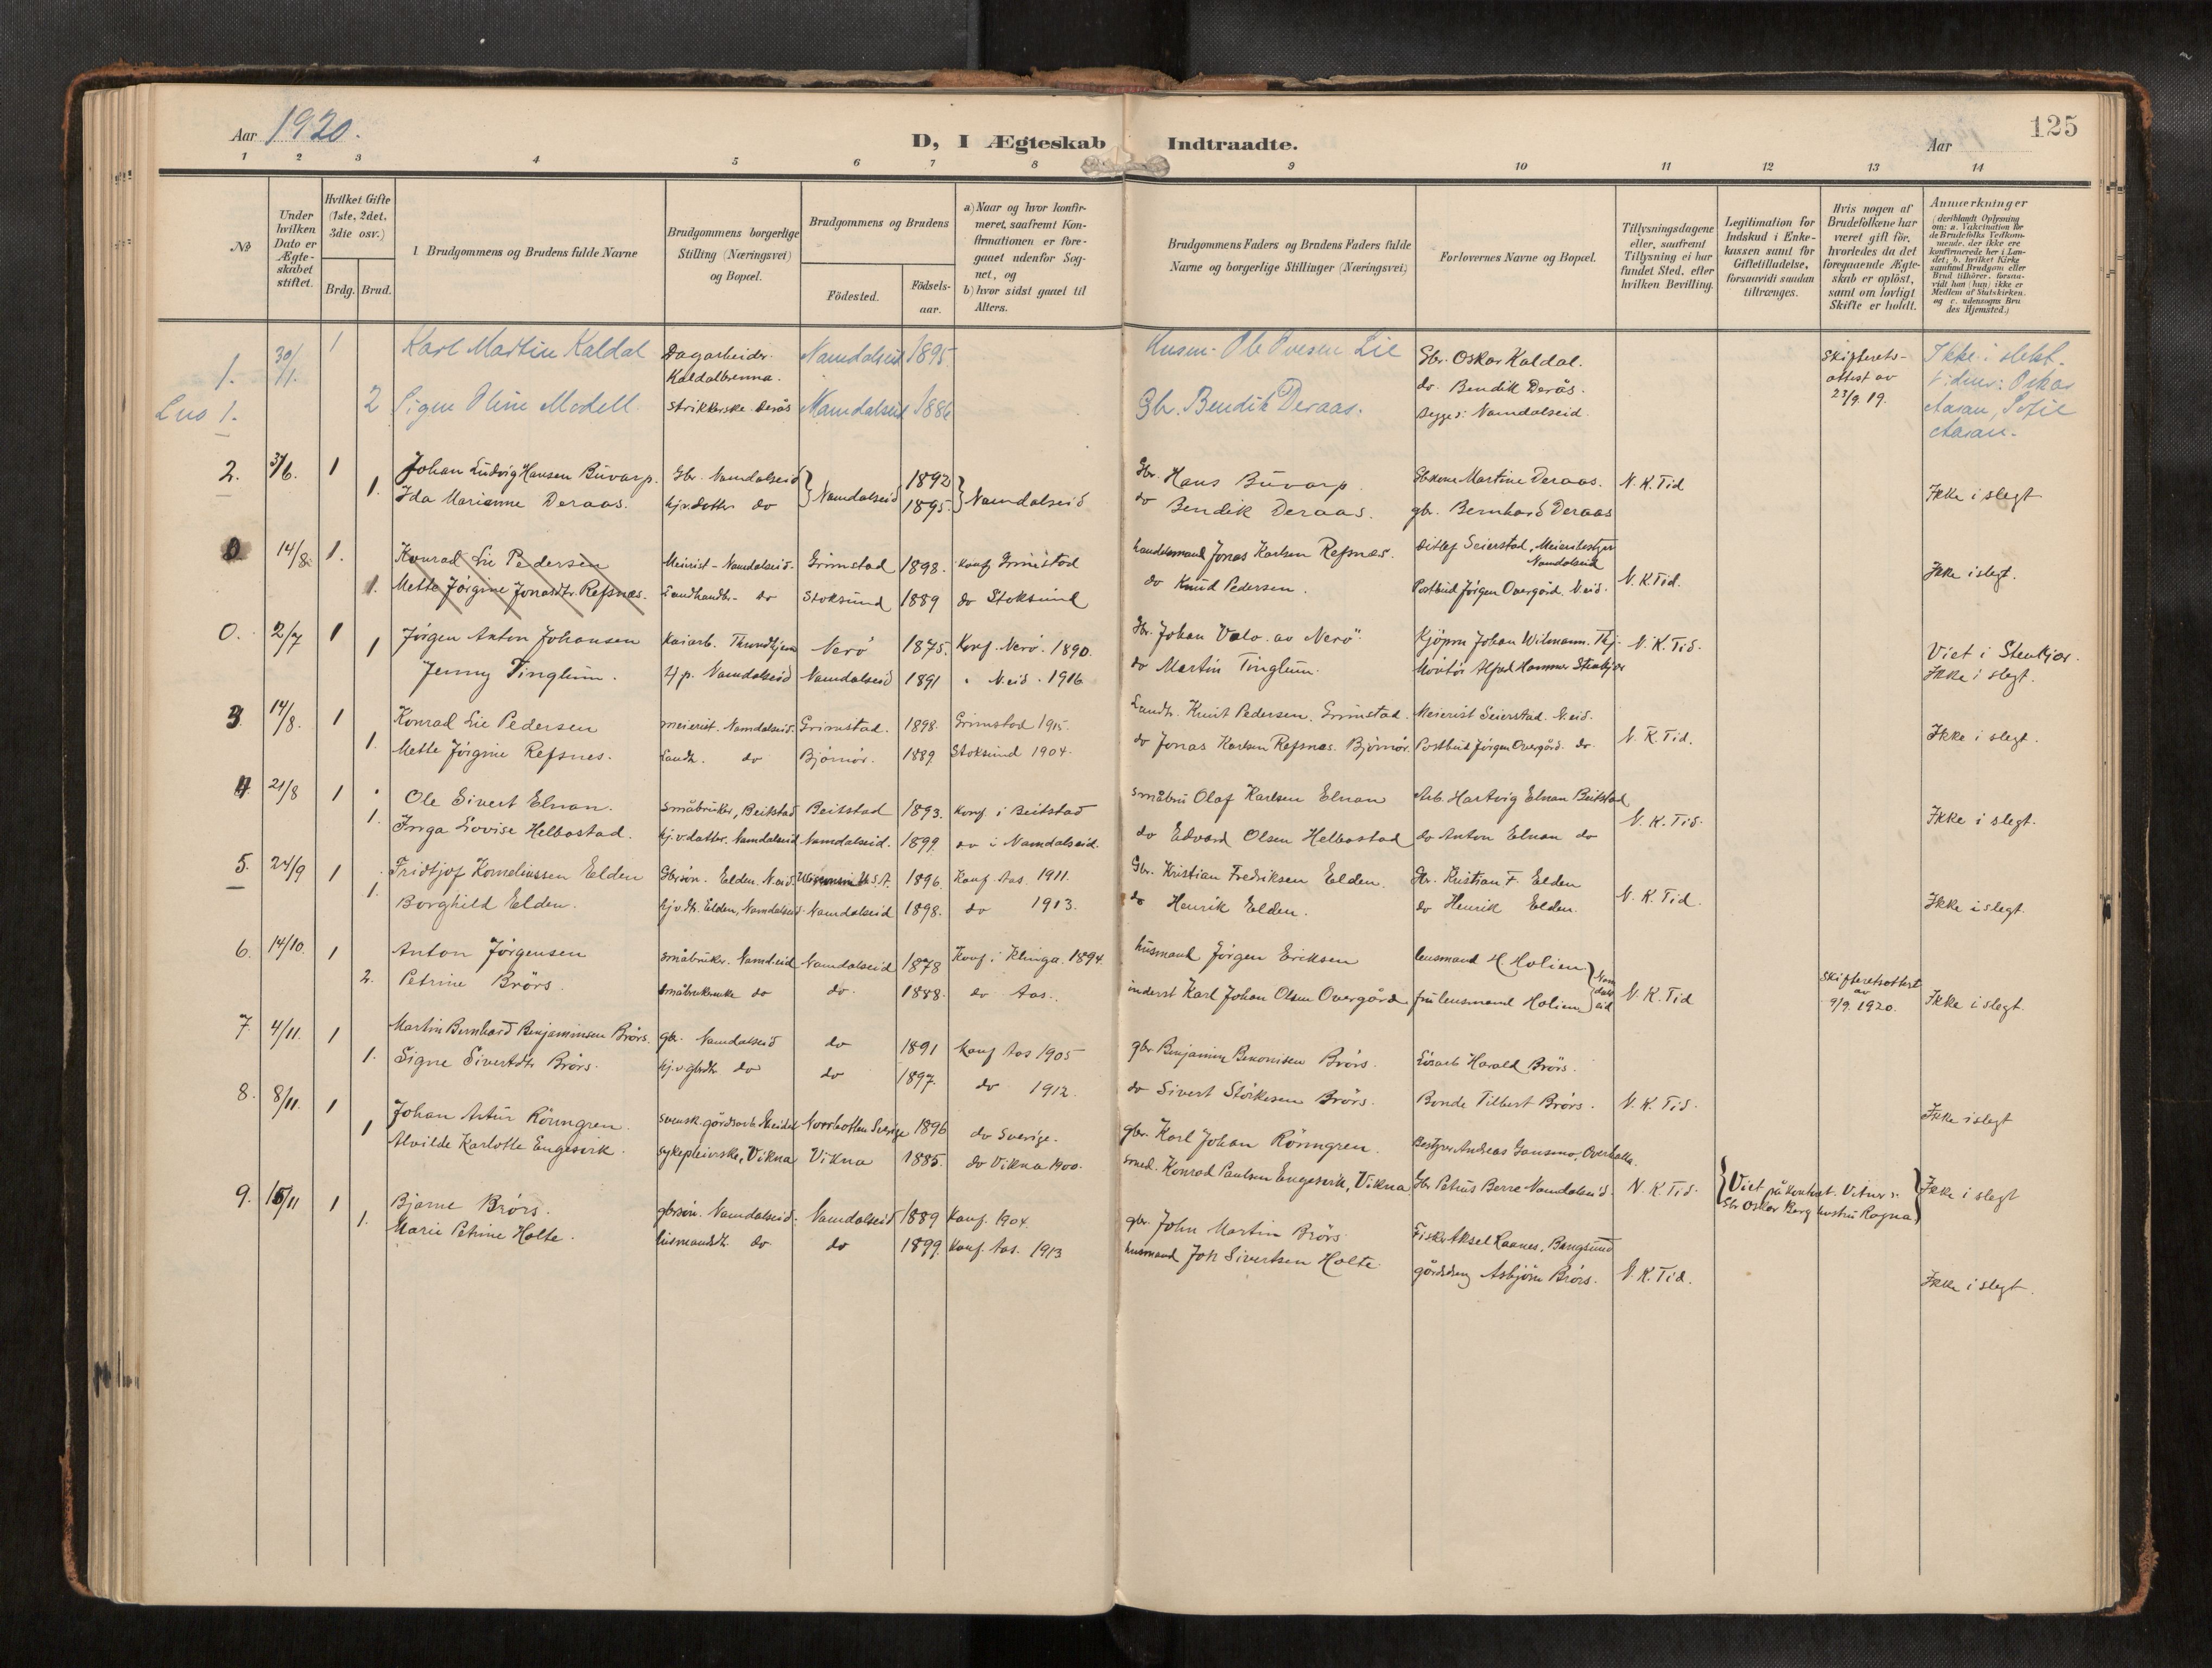 Aar 1920.
D, I Ægteskab Indtraadte.
Aar
125
1 2 3 4 5 6 7 8 9 10 11 12 13 14
No
Under hvilken Dato er Ægteskabet stiftet.
Hvilket Gifte (1ste, 2det, 3die osv.)
Brdg. Brud.
1 Brudgommens og Brudens fulde Navne
Brudgommens borgerlige Stilling (Næringsvei) og Bopæl.
Brudgommens og Brudens
Födested.
Födselsaar.
a) Naar og hvor konfirmeret, saafremt Konfirmationen er foregaaet udenfor Sognet, og
b) hvor sidst gaaet til Alters.
Brudgommens Faders og Brudens Faders fulde Navne og borgerlige Stillinger (Næringsvei)
Forlovernes Navne og Bopæl.
Tillysningsdagene eller, saafremt Tillysning ei har fundet Sted, efter hvilken Bevilling.
Legitimation for Indskud i Enkekassen samt for Giftetilladelse, forsaavidt saadan tiltrænges.
Hvis nogen af Brudefolkene har været gift för, hvorledes da det foregaaende Ægteskab er oplöst, samt om lovligt Skifte er holdt.
Anmærkninger (deriblandt Oplysning om: a. Vakcination for de Brudefolks Vedkommende, der ikke ere konfirmerede her i Landet; b. hvilket Kirkesamfund Brudgom eller Brud tilhörer, forsaavidt han (hun) ikke er Medlem af Statskirken, og c. udensogns Brudes Hjemsted.)
1. 30/11. 1 Karl Martin Kaldal Dagarbeider. Kaldalbrenna. Namdalseid 1895. Husm. Ole Ovesen Lie Gbr. Oskar Kaldal. Skifterets-attest av 23/9. 19. Ikke i slekt.
Lno 1. 2 Signe Oline Modell. Strikkerske Derås Namdalseid 1886 Gbr. Bendik Deraas. do. Bendik Derås. begge: Namdalseid. Oskar Aasan, Sofie Aasan.
2. 3/6. 1 Johan Ludvig Hansen Buvarp. Gbr. Namdalseid } Namdalseid 1892 } Namdalseid Gbr. Hans Buvarp. Gbkone Martine Deraas. N. K. Tid
1. Ida Marianne Deraas. hj.v. datter do 1895. do Bendik Deraas. gbr. Bernhard Deraas Ikke i slegt
14/8. 1. Konrad Lie Pedersen Meierist - Namdalseid - Grimstad 1898. konf Grimstad handelsmand Jonas Karlsen Refsnæs. Ditlef Seierstad, Meieribestyrer Namdalseid
1. Mette Jörgine Jonasdtr. Refsnæs. Landhandbr. do Stoksund 1889 do Stoksund do Knud Pedersen. Postbud Jörgen Overgård. N.eid. N. K. Tid. Ikke i slegt.
0. 2/7 1 Jörgen Anton Johansen Kaiarb. Throndhjem Nerö 1875. Konf. Nerö. 1890. Gbr. Johan Valö. av Nerö. Kjöpm Johan Wilmann. Thj. N. K. Tid. Viet i Stenkjær.
1 Jenny Tinglum. Hj.p. Namdalseid Namdalseid 1891 " N.eid. 1916 do Martin Tinglum. Montör Alfred Hammer Stenkjær Ikke i slegt.
3. 14/8. 1 Konrad Lie Pedersen meierist. Namdalseid. Grimstad. 1898. Grimstad 1915. Landh. Knut Pedersen. Grimstad. Meierist Seierstad. N.eid.
1. Mette Jörgine Refsnes. Landh. do Bjömör. 1889. Stoksund 1904. do Jonas Karlsen Refsnæs. Björnör. Postbud Jörgen Overgård. do. N. K. Tid. Ikke i slegt.
4. 21/8 1 Ole Sivert Elnan. småbruker, Beitstad Beitstad 1893. Konf i Beitstad småbru Olaf Karlsen Elnan Arb. Hartvig Elnan Beitstad
1. Inga Lovise Helbostad. hj.v. datter. Namdalseid Namdalseid. 1899. do i Namdalseid. do Edvard Olsen Helbostad do Anton Elnan do N. K. Tid. Ikke i slegt.
5. 24/9 1 Fridtjof Korneliussen Elden Gbrsön. Elden. N.eid. Wisconsin U.S.A. 1896. Konf Aas. 1911. Gbr. Kristian Fredriksen Elden. Gbr. Kristian F. Elden
1. Borghild Elden. hj.v. dtr. Elden, Namdalseid Namdalseid 1898. do 1913. do Henrik Elden. do Henrik Elden. N. K. Tid. Ikke i slegt.
6. 14/10. 1 Anton Jörgensen småbruker. Namd.eid Namdalseid 1878 Konf i Klinga. 1894. husmand Jörgen Eriksen lensmand H. Holien } Namdalseid Skifteretsattest av 9/9. 1920.
2. Petrine Brörs. småbrukerske do do. 1888. do Aas. inderst Karl Johan Olsen Overgård fru lensmand Holien N. K. Tid Ikke i slegt.
7. 4/11. 1 Martin Bernhard Benjaminsen Brörs. gbr. Namdalseid do 1891 konf Aas 1905 gbr. Benjamin Benonisen Brörs. Lösarb Harald Brörs.
1. Signe Sivertdtr Brörs. hj.v. gbrdtr do do 1897. do 1912. do Sivert Störkesen Brörs. Bonde Tilbert Brörs. N. K. Tid. Ikke i slegt
8. 8/11. 1 Johan Artur Rönngren. svensk. gårdsarb. Norrbotten Sverige 1896 do Sverige. gbr. Karl Johan Rönngren. Bestyrer Andreas Gansmo, Overhalla.
1 Alvilde Karlotte Engesvik. sykepleierske, Vikna Vikna 1885. do Vikna 1900. smed. Konrad Paulsen Engesvik, Vikna Gbr Petrus Berre Namdalseid. N. K. Tid. { Viet på kontoret. Vitner: Gbr Oskar Berg hustru Ragna } Ikke i slegt
9. 15/11 1 Bjarne Brörs. gbrsön. Namdalseid. Namdalseid 1889 Konf. 1904. gbr. John Martin Brörs Fisker Aksel Raanes, Bangsund
1. Marie Petrine Holte. husmandsdtr do do 1899. Konf. Aas. 1913 husmand Joh Sivertsen Holte. gårdsdreng Asbjörn Brörs. N. K. Tid. Ikke i slegt.